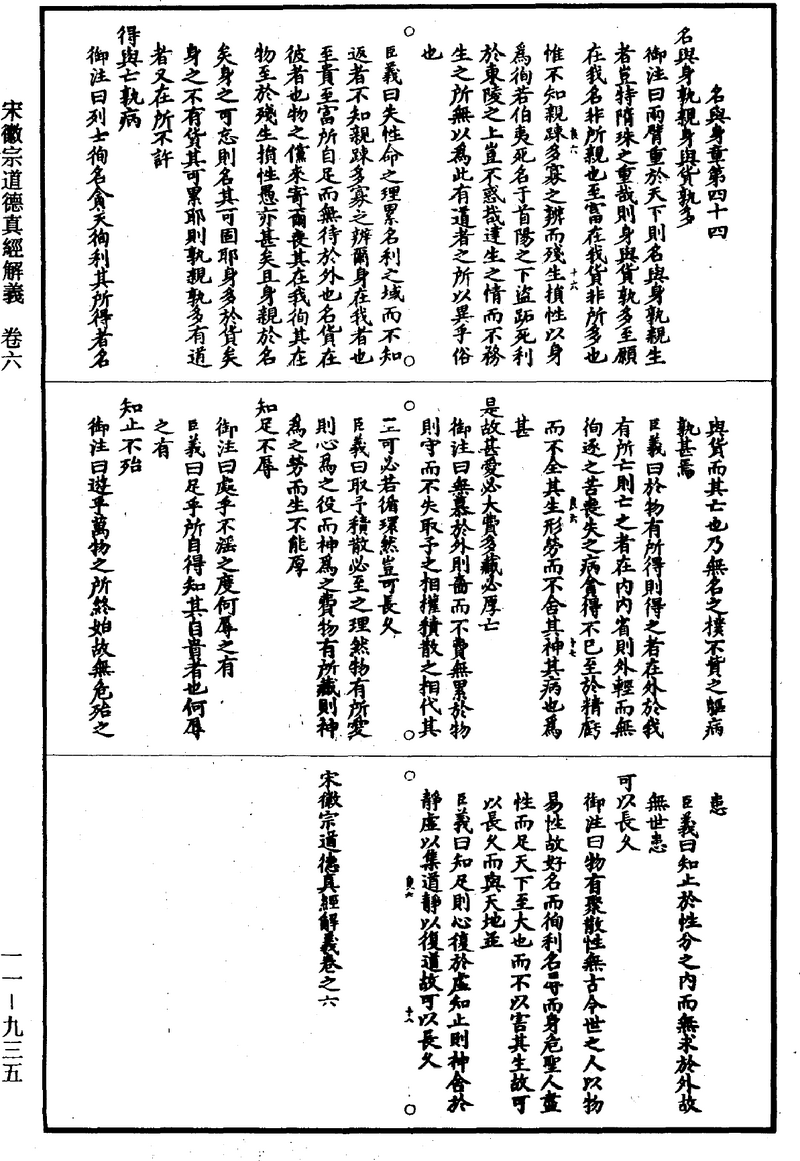 宋徽宗道德真經解義　卷六
一一—九三五
名與身章第四十四
名與身孰親身與貨孰多
御注曰兩臂重於天下則名與身孰親生
者豈特隋珠之重哉則身與貨孰多至願
在我名非所親也至富在我貨非所多也
惟不知親踈多寡之辨而殘生損性以身
為徇若伯夷死名于首陽之下盜跖死利
於東陵之上豈不惑哉達生之情而不務
生之所無以為此有道者之所以異乎俗
也
臣義曰失性命之理累名利之域而不知
返者不知親踈多寡之辨爾身在我者也
至貴至富所自足而無待於外也名貨在
彼者也物之儻來寄爾喪其在我徇其在
物至於殘生損性愚亦甚矣且身親於名
矣身之可忘則名其可固耶身多於貨矣
身之不有貨其可累耶則孰親孰多有道
者又在所不許
得與亡孰病
御注曰列士徇名貪夫徇利其所得者名
與貨而其亡也乃無名之樸不貲之軀病
孰甚焉
臣義曰於物有所得則得之者在外於我
有所亡則亡之者在內內省則外輕而無
徇逐之苦喪失之病貪得不已至於精虧
而不全其生形勞而不舍其神其病也為
甚
是故甚愛必大費多藏必厚亡
御注曰無慕於外則嗇而不費無累於物
則守而不失取予之相權積散之相代其
二可必若循環然豈可長久
臣義曰取予積散必至之理然物有所愛
則心為之役而神為之費物有所藏則神
為之勞而生不能厚
知足不辱
御注曰處乎不淫之度何辱之有
臣義曰足乎所自得知其自貴者也何辱
之有
知止不殆
御注曰遊乎萬物之所終始故無危殆之
患
臣義曰知止於性分之內而無求於外故
無世患
可以長久
御注曰物有聚散性無古今世之人以物
易性故好名而徇利名辱而身危聖人盡
性而足天下至大也而不以害其生故可
以長久而與天地並
臣義曰知足則心復於虛知止則神舍於
靜虛以集道靜以復道故可以長久
宋徽宗道德真經解義卷之六